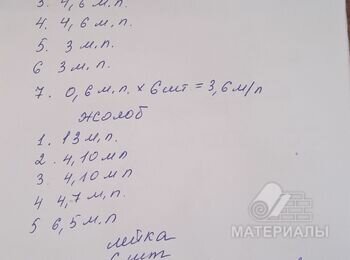 3. 4,6 м.п.
4. 4,6 м.п.
5. 3 м.п.
6 3 м.п.
7. 0,6 м.п. × 6 шт = 3,6 м/п
жолоб
1. 13 м.п.
2. 4,10 мп
3 4,10 мп
4 4,7 м.п.
5 6,5 м.п
лейка
6 шт
МАТЕРИАЛЫ